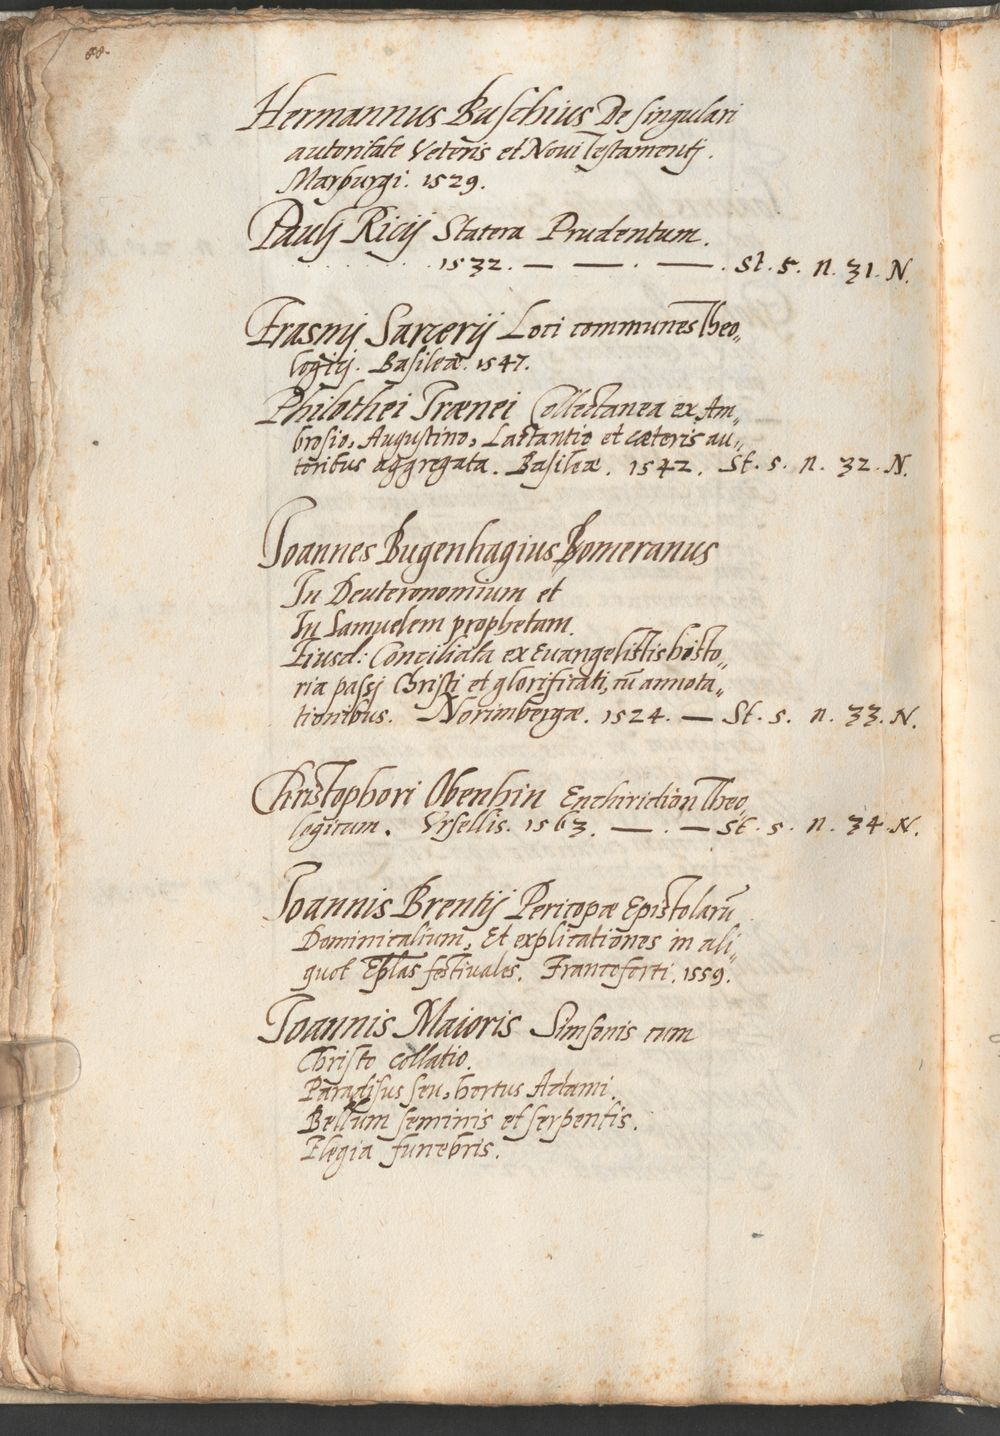 88.
Hermannus Buschius De singulari
autoritate Veteris et Noui Testamentj.
Marpurgi. 1529.
Paulj Ricij Statera Prudentum.
1532. — — . — . St. 5. n. 31. N.
Erasmj Sarcerij Loci communes Theo„
logicj. Basileæ. 1547.
Philothei Irænei Collectanea ex Am„
brosio, Augustino, Lactantio et cæteris au„
toribus aggregata. Basileæ. 1542. St. s. n. 32. N.
Joannes Bugenhagius Pomeranus
In Deuteronomium et
In Samuelem prophetam.
Eiusd: Conciliata ex Euangelistis histo„
ria passj Christi et glorificati, cũ annota„
tionibus. Norimbergæ. 1524. — St. s. n. 33. N.
Christophori Obenhin Enchiridion Theo„
logicum. Vrsellis. 1563. — . — St. s. n. 34. N.
Joannis Brentij Pericopæ Epistolarũ
Dominicalium, Et explicationes in ali„
quot Eplas festiuales. Francoforti. 1559.
Joannis Maioris Simsonis cum
Christo collatio.
Paradisus seu, hortus Adami.
Bellum seminis et serpentis.
Elegia funebris.